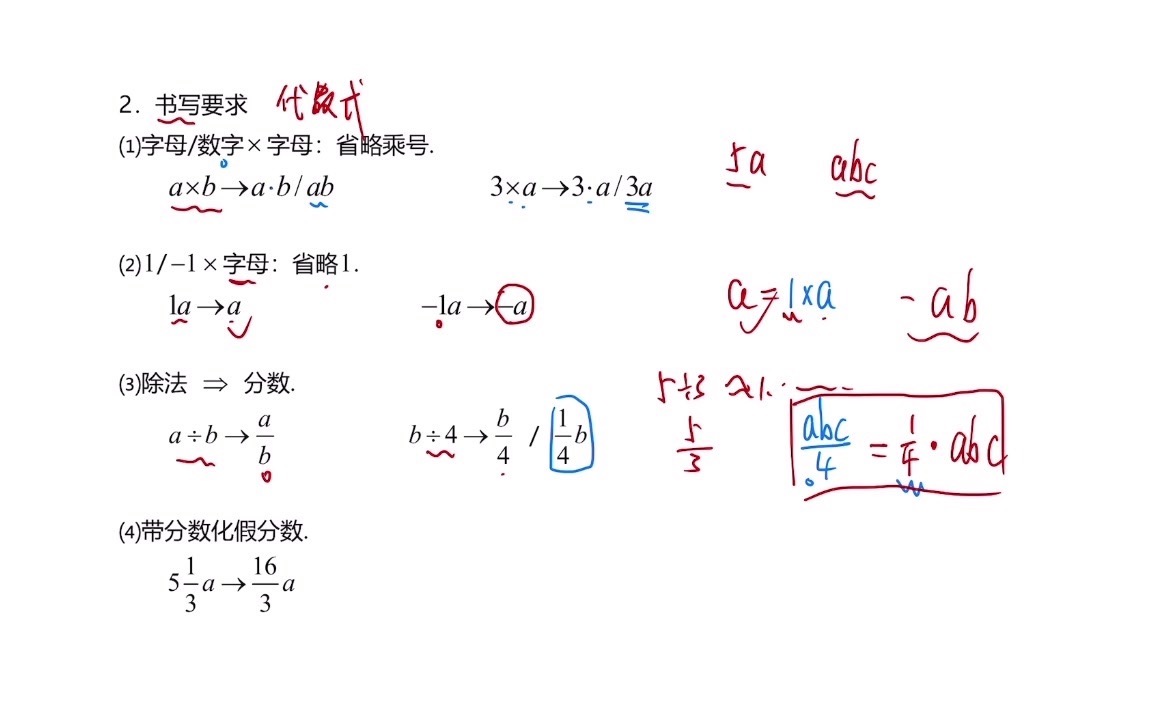 2. 书写要求 代数式
(1)字母/数字×字母：省略乘号.
a×b→a·b/ab 3×a→3·a/3a 5a abc
(2)1/−1×字母：省略1.
1a→a −1a→−a a=1×a -ab
(3)除法 ⇒ 分数. 5÷3 ≈1.
a÷b→a/b b÷4→b/4 / 1/4 b 5/3 abc/4 = 1/4·abc
(4)带分数化假分数.
5 1/3 a→16/3 a